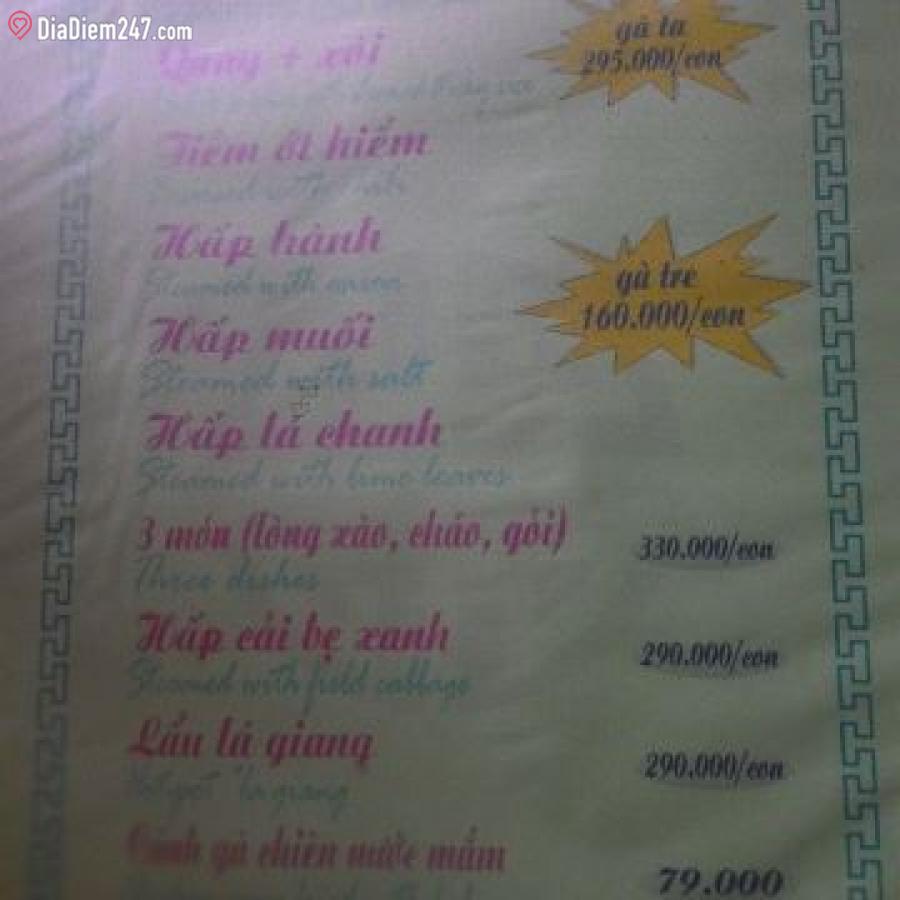 DiaDiem247.com
Quay + xôi
gà ta
295.000/con
Tiềm ớt hiểm
Hấp hành
Steamed with onion
gà tre
160.000/con
Hấp muối
Steamed with salt
Hấp lá chanh
Steamed with lime leaves
3 món (lòng xào, cháo, gỏi)
330.000/con
Three dishes
Hấp cải bẹ xanh
290.000/con
Steamed with field cabbage
Lẩu lá giang
290.000/con
Hot pot "la giang
Cánh gà chiên nước mắm
79.000